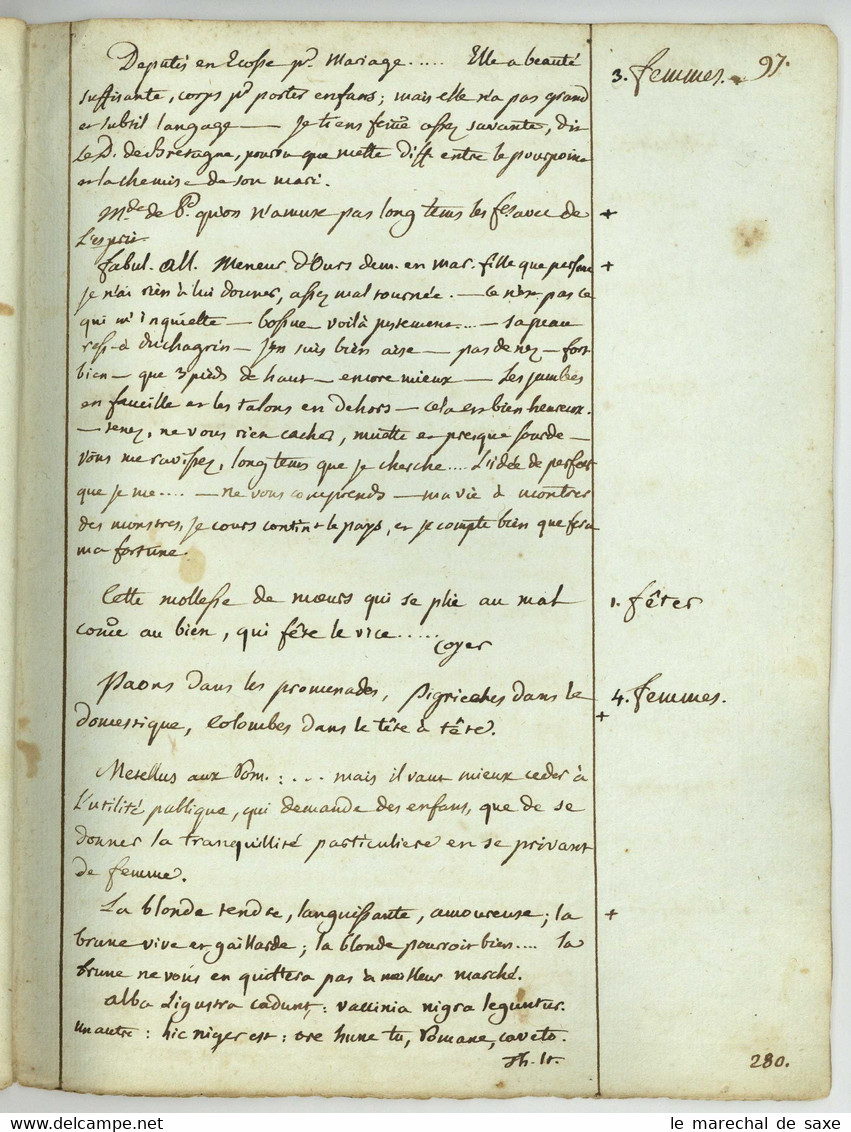 97.
3. femmes.
Deputés en Ecosse pr. Mariage ..... Elle a beauté
suffisante, corps pr porter enfans; mais elle n'a pas grand
et subtil langage — je tiens feme assez savante, dit
Le D. de Bretagne, pourvu que mette diff entre le pourpoint
et la chemise de son mari.
Mde de qu'on n'amuse pas long tems les fes avec de +
L'esprit.
fabul. all. Meneur d'Ours dem. en mar. fille que perfone +
je n'ai rien à lui donner, assez mal tournée. — Ce n'est pas ce
qui m'inquiette — bossue voilà justement... — sa peau
ress-à du chagrin — j'en suis bien aise — pas de nez — fort
bien — que 3 pieds de haut — encore mieux — Les jambes
en faucille et les talons en dehors — cela est bien heureux.
— tenez, ne vous rien cacher, muette et presque sourde —
vous me ravissez, long tems que je cherche.... L'idée de perfect
que je me .... — ne vous comprends — ma vie à montrer
des monstres, je cours contint le pays, et je compte bien que fera
ma fortune.
Cette mollesse de mœurs qui se plie au mal 1. fêter
come au bien, qui fête le vice.....
Coyer
Paons dans les promenades, Pigrieches dans le 4. femmes.
domestique, Colombes dans le tête à tête. +
Metellus aux Rom. : ... mais il vaut mieux ceder à
L'utilité publique, qui demande des enfans, que de se
donner la tranquillité particuliere en se privant
de femme.
La blonde tendre, languissante, amoureuse; la +
brune vive et gaillarde; la blonde pourroit bien.... la
brune ne vous en quittera pas à meilleur marché.
Alba Ligustra cadunt, : vaccinia nigra leguntur.
un autre : hic niger est : ore hunc tu, Romane, caveto.
Th. It.
280.
le marechal de saxe